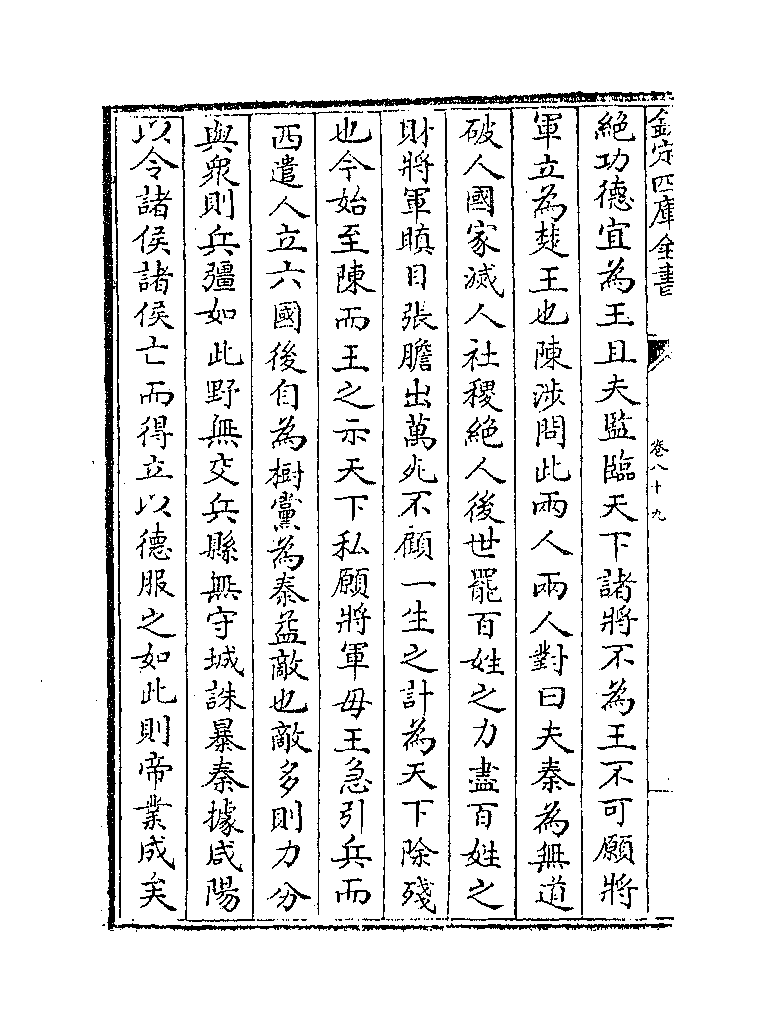 欽定四庫全書
卷八十九
絶功德宜為王且夫監臨天下諸將不為王不可願將
軍立為楚王也陳涉問此兩人兩人對曰夫秦為無道
破人國家滅人社稷絶人後世罷百姓之力盡百姓之
財將軍瞋目張膽出萬死不顧一生之計為天下除殘
也今始至陳而王之示天下私願將軍毋王急引兵而
西遣人立六國後自為樹黨為秦益敵也敵多則力分
與衆則兵彊如此野無交兵縣無守城誅暴秦據咸陽
以令諸侯諸侯亡而得立以德服之如此則帝業成矣